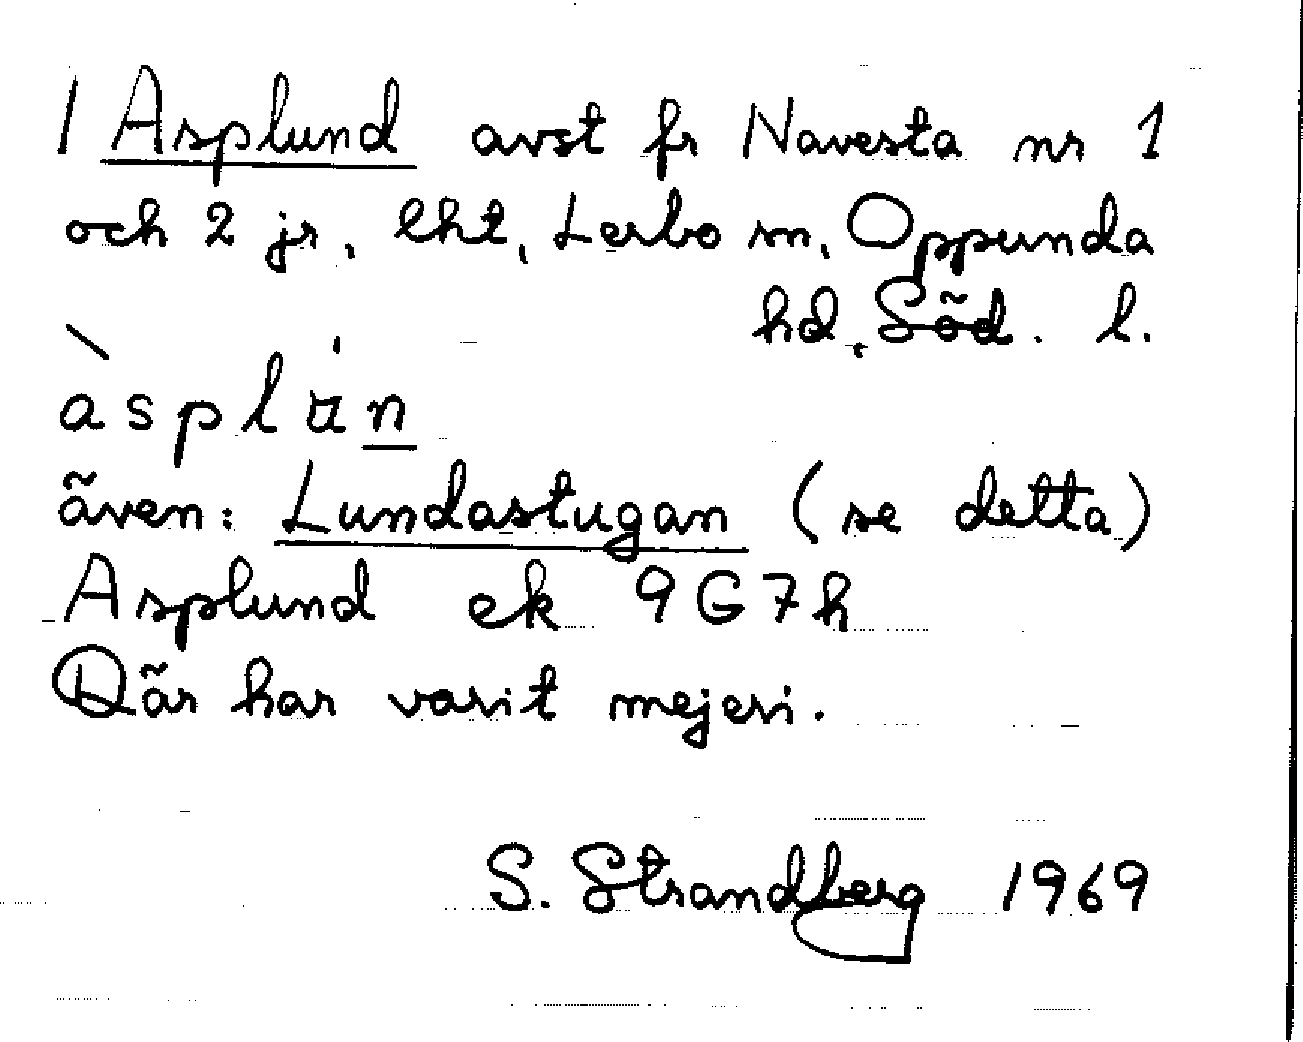 1 Asplund avst fr Navesta nr 1
och 2 js, lht, Lerbo sn, Oppunda
hd, Söd. l.
àsplún
även: Lundastugan (se detta)
Asplund ek 9G7h
Där har varit mejeri.
S. Strandberg 1969